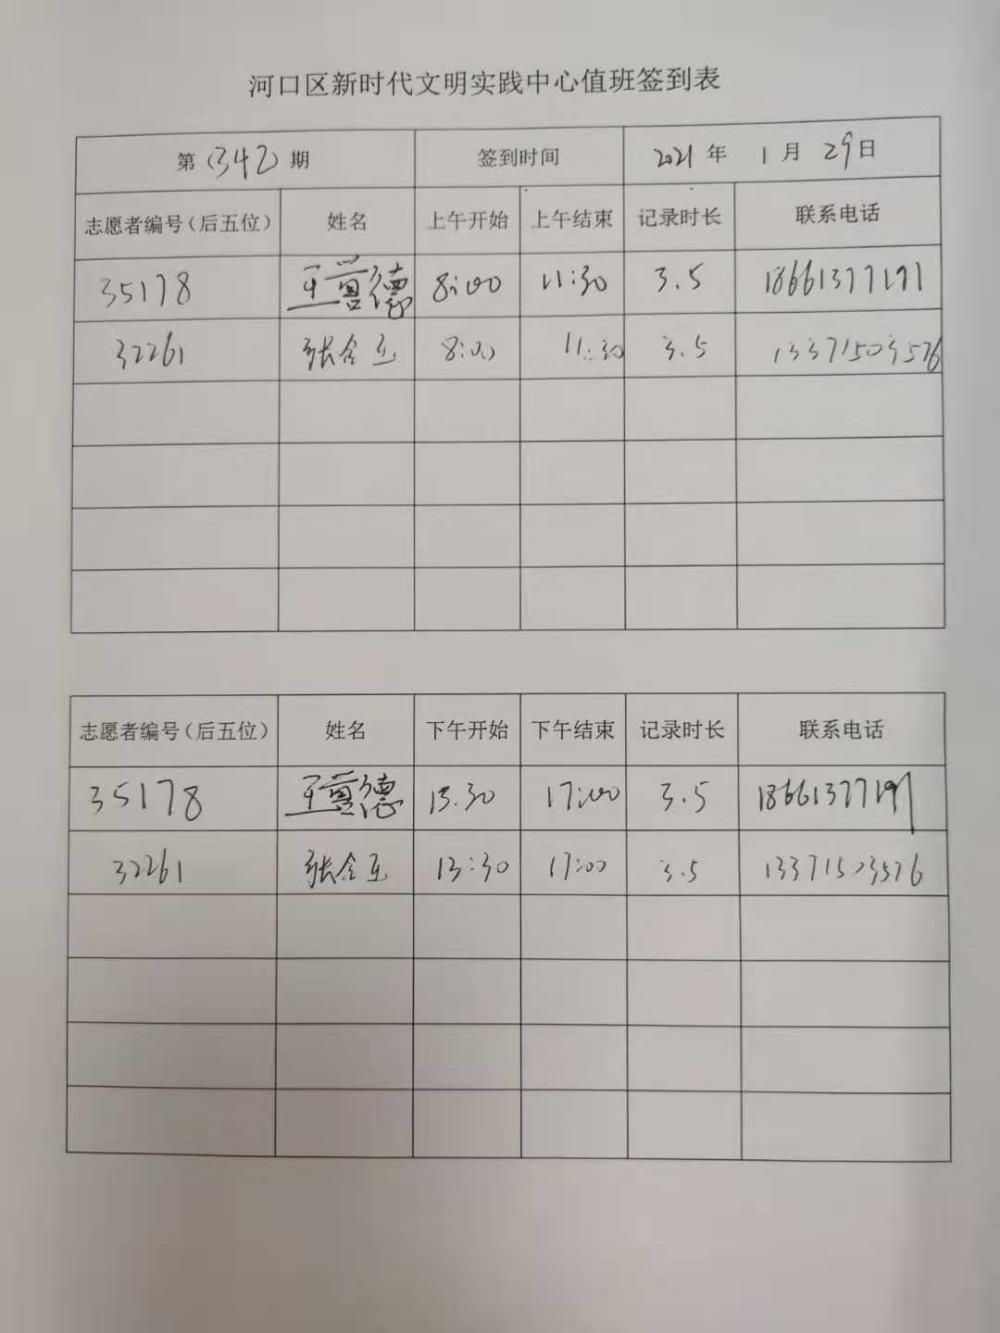 河口区新时代文明实践中心值班签到表
第（342）期 签到时间 2021年 1月 29日
志愿者编号（后五位） 姓名 上午开始 上午结束 记录时长 联系电话
35178 王 德 8:00 11:30 3.5 18661377191
32261 张 8:00 11:30 3.5 13371503576
志愿者编号（后五位） 姓名 下午开始 下午结束 记录时长 联系电话
35178 王 德 13.30 17:00 3.5 18661377191
32261 张 13:30 17:00 3.5 13371503576